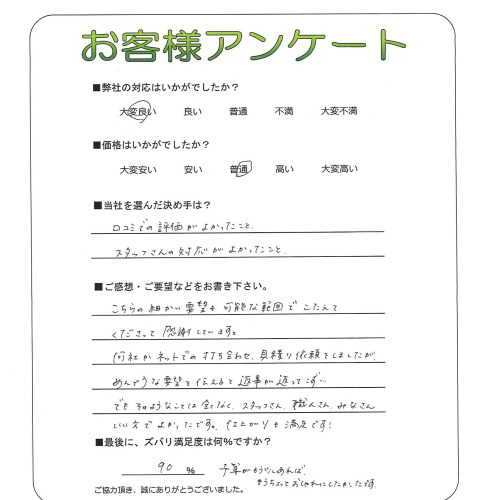 お客様アンケート
■弊社の対応はいかがでしたか？
大変良い 良い 普通 不満 大変不満
■価格はいかがでしたか？
大変安い 安い 普通 高い 大変高い
■当社を選んだ決め手は？
口コミでの評価がよかったこと、
スタッフさんの対応がよかったこと、
■ご感想・ご要望などをお書き下さい。
こちらの細かい要望も可能な範囲でこたえて
くださって感謝しています。
何社かネットでの打ち合わせ、見積り依頼をしましたが、
めんどうな要望を伝えると返事が返ってこず…
でもそのようなことは全くなく、スタッフさん、職人さん、みなさん
いい方でよかったです。仕上がりも満足です!
■最後に、ズバリ満足度は何％ですか？
90 % 予算がもう少しあれば、
もうちょっとおしゃれにしたかったです
ご協力頂き、誠にありがとうございました。